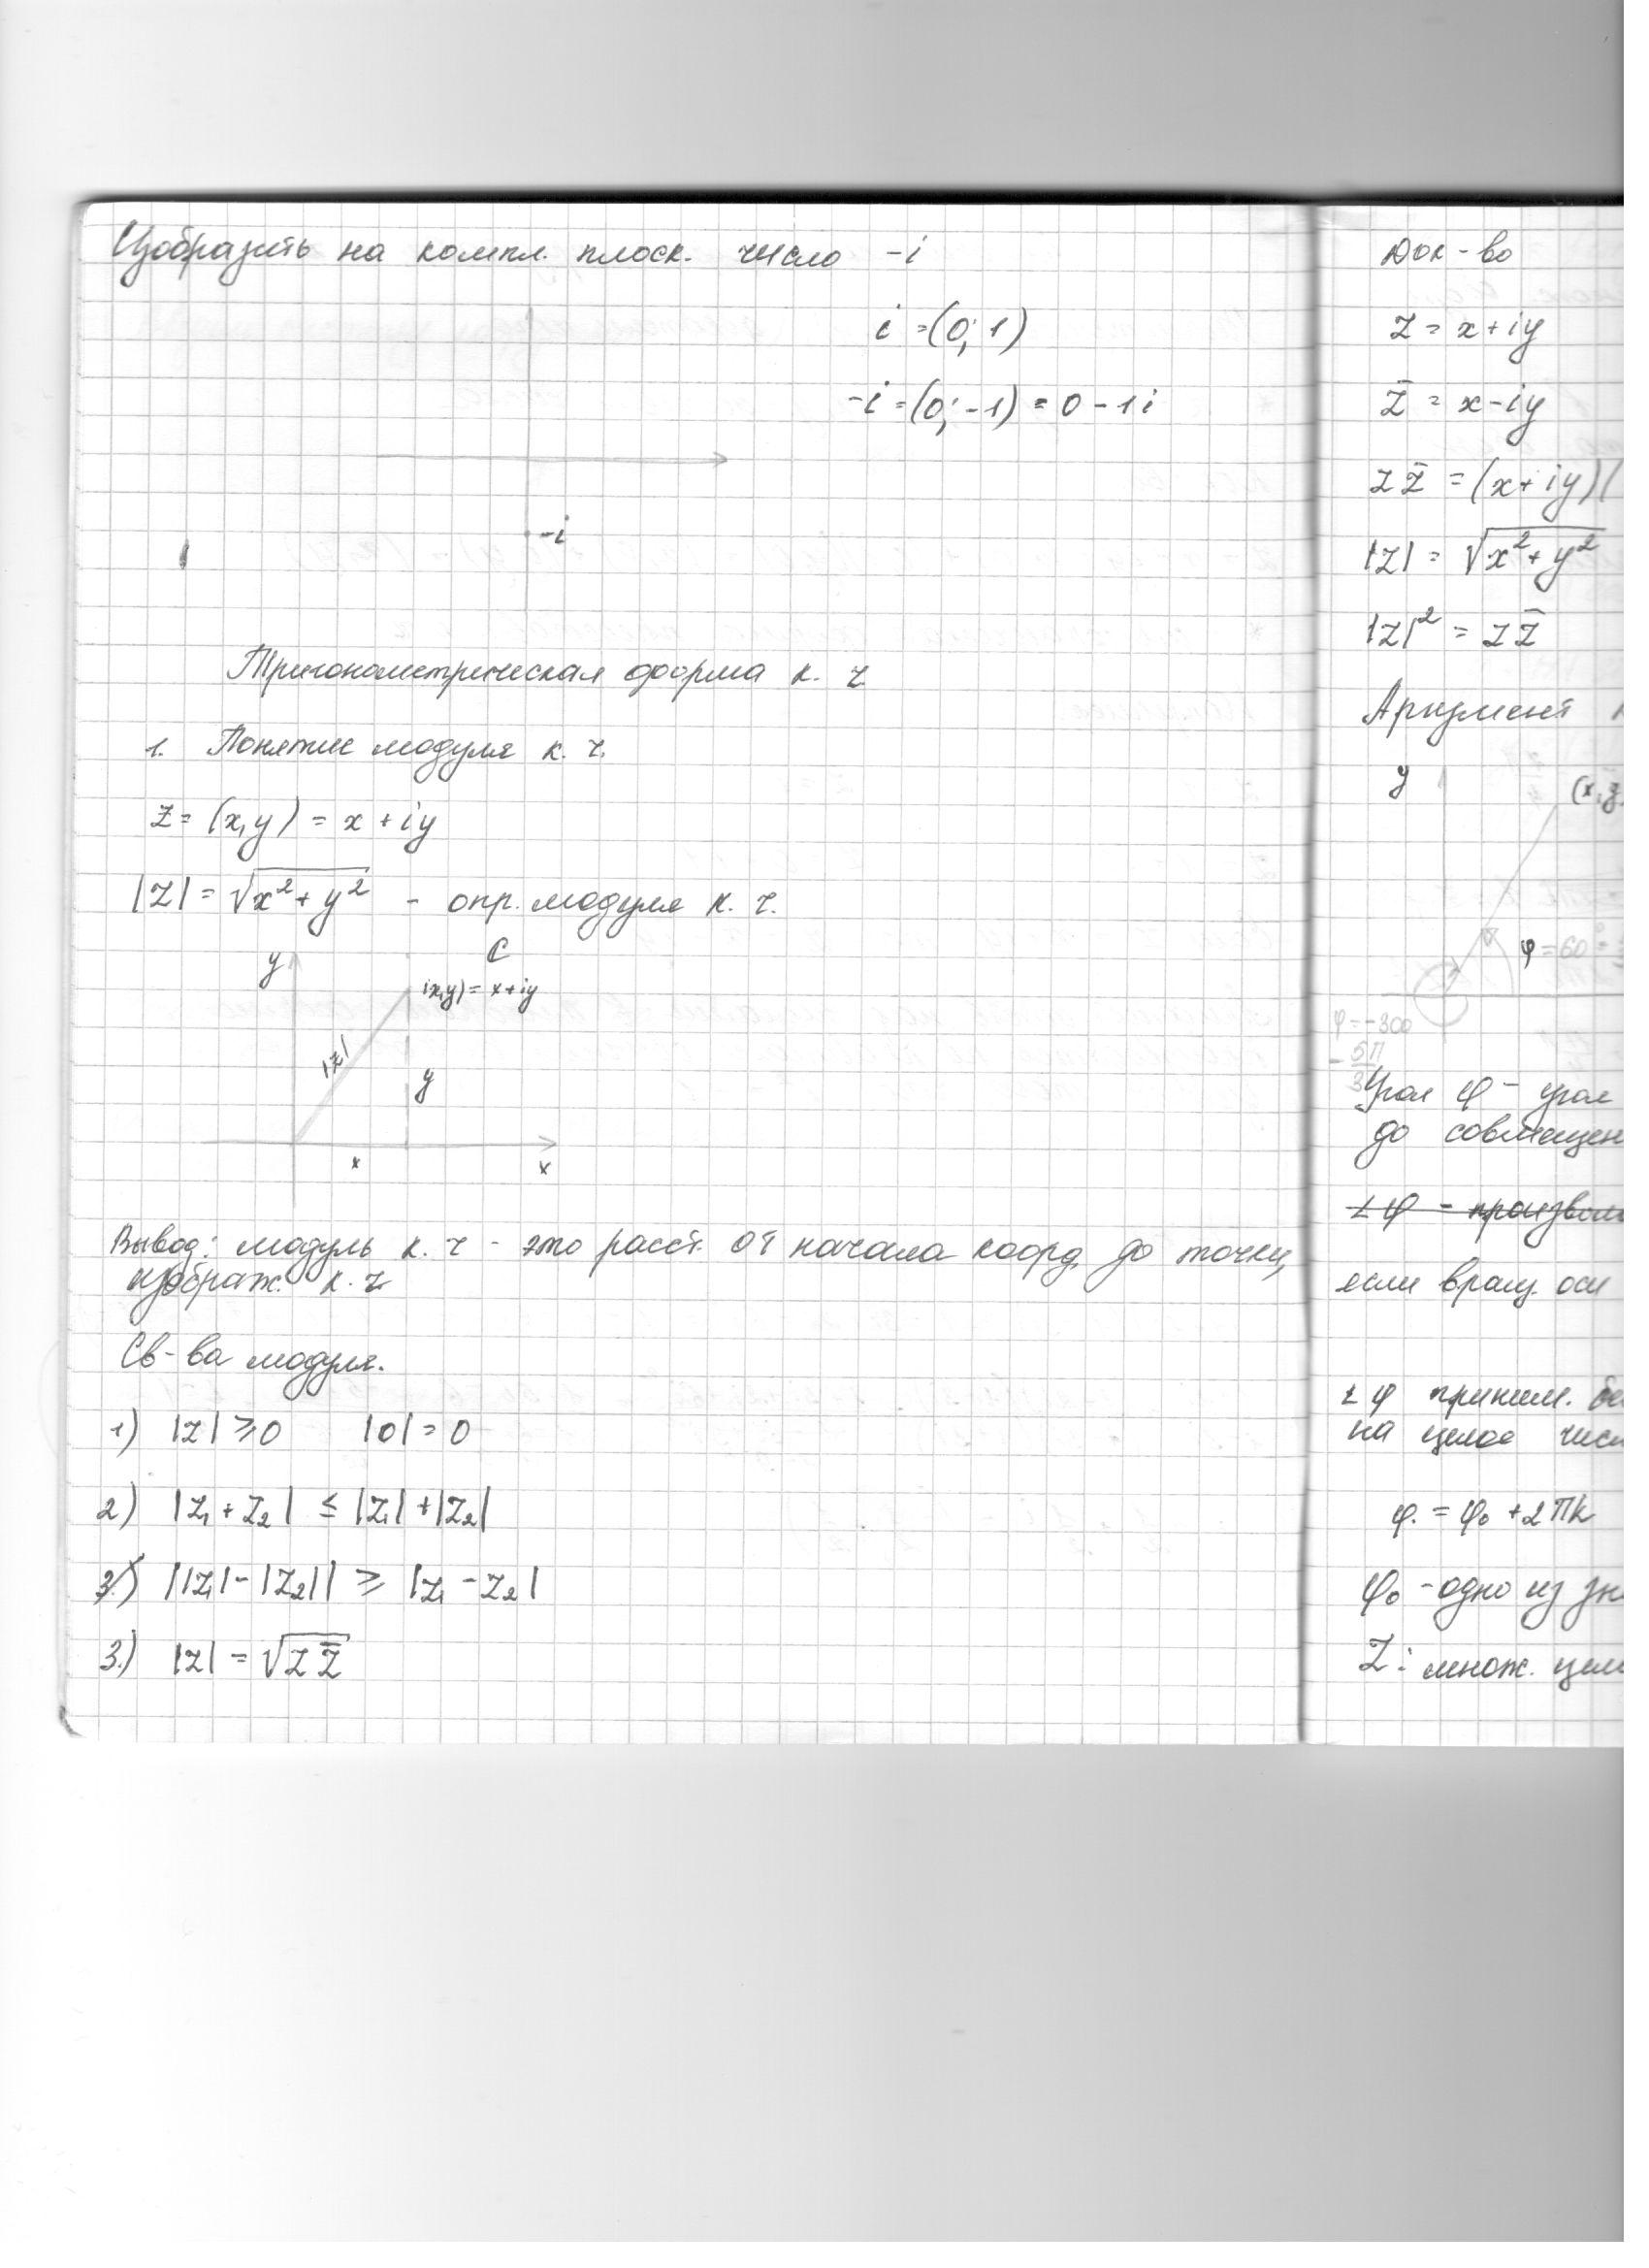 Изобразить на компл. плоск. число -i
i = (0; 1)
-i = (0; -1) = 0 - 1i
-i
Тригонометрическая форма к. ч
1. Понятие модуля к. ч.
Z = (x,y) = x + iy
|Z| = √(x² + y²) - опр. модуля к. ч.
y
C
(x,y) = x + iy
|z|
y
x
x
Вывод: модуль к. ч - это расст. от начала коорд. до точки,
изображ. к. ч
Св-ва модуля.
1) |Z| ≥ 0 |0| = 0
2) |Z₁ + Z₂| ≤ |Z₁| + |Z₂|
3.) ||Z₁| - |Z₂|| ≥ |Z₁ - Z₂|
3.) |Z| = √(Z Z̄)
Док-во
Z = x + iy
Z̄ = x - iy
Z Z̄ = (x + iy)(
|Z| = √(x² + y²)
|Z|² = Z Z̄
Аргумент
y
(x,
φ = 60°
φ = -300
- 5π
3
Угол φ - угол
до совмещен
∠φ - произволь
если вращ. оси
∠φ приним. бе
на целое чис
φ = φ₀ + 2πk
φ₀ - одно из зн
Z: множ. цел